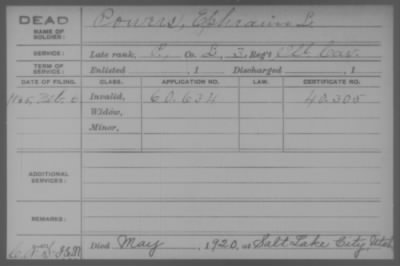 DEAD
NAME OF SOLDIER: Powers, Ephraim L.
SERVICE: Late rank, Co. L, 3, Reg't Cav.
TERM OF SERVICE: Enlisted , 1 Discharged , 1
DATE OF FILING. CLASS. APPLICATION NO. LAW. CERTIFICATE NO.
Invalid, 60.634 40.305
Widow,
Minor,
ADDITIONAL SERVICES:
REMARKS:
Died May , 1920, at Salt Lake City, Utah